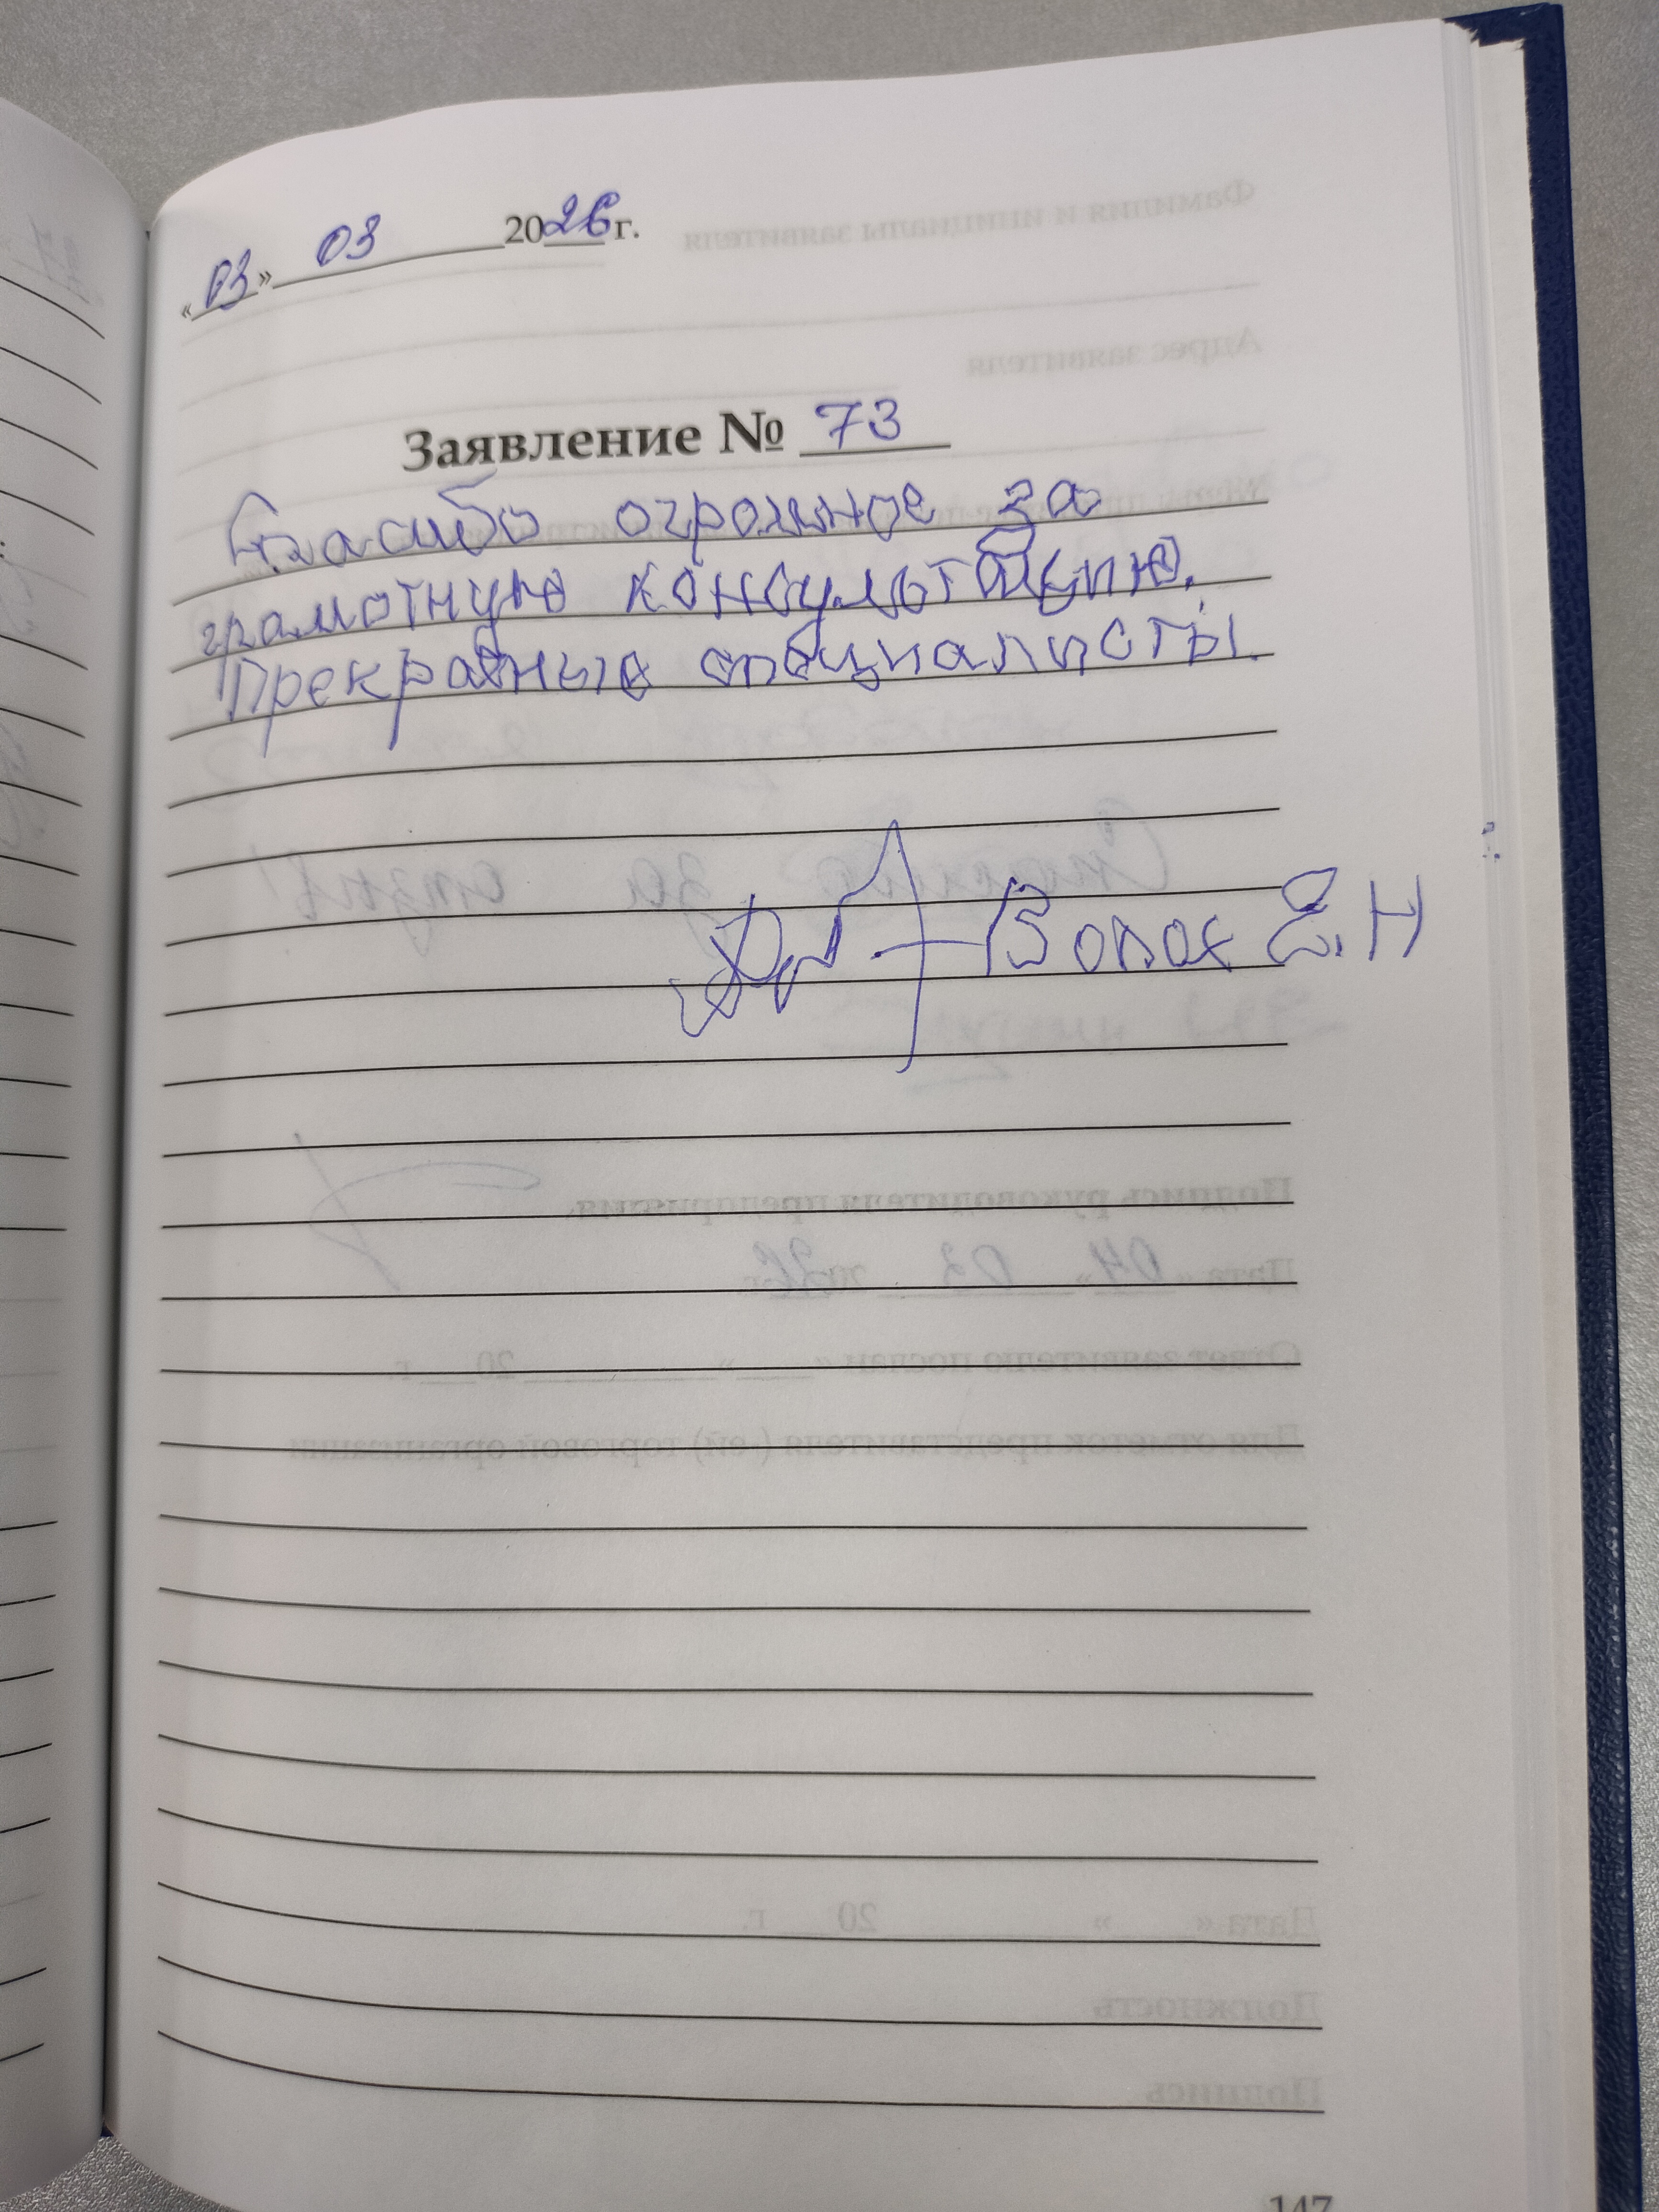 «03» 03 2026 г.
Заявление № 73
Спасибо огромное за
грамотную консультацию.
Прекрасные специалисты.
Е.Н
147